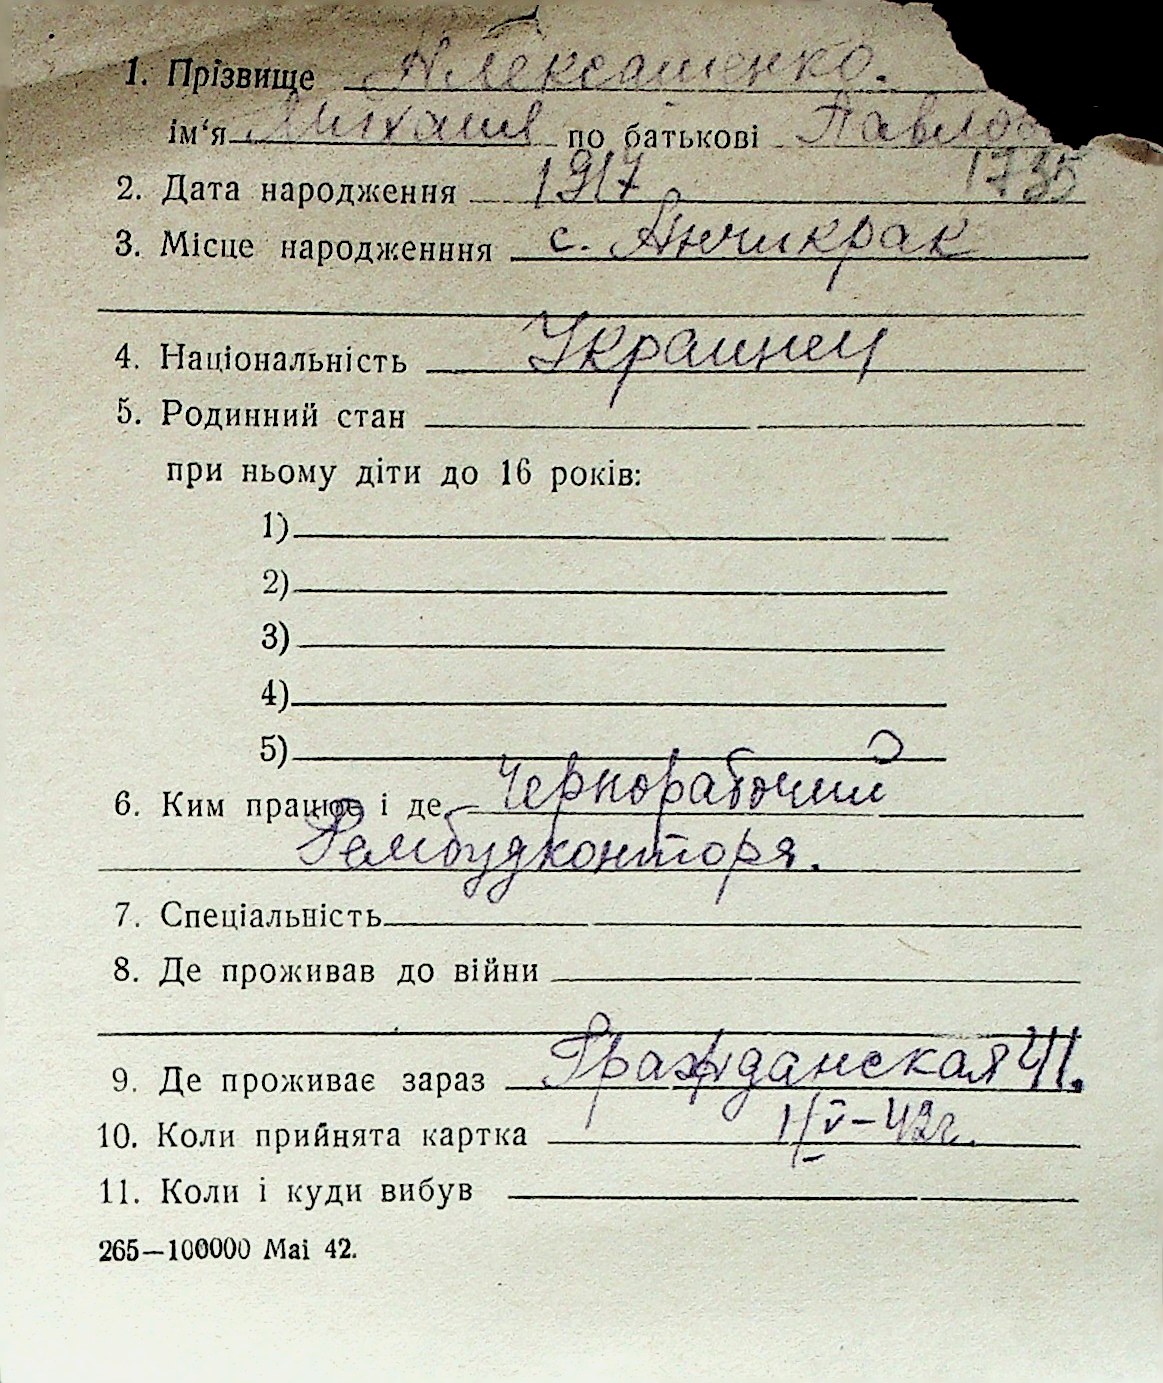 1. Прізвище Алексашенко.
ім‘я Михаил по батькові Павлов
1735
2. Дата народження 1917
3. Місце народженння с. Анчикрак
4. Національність Украинец
5. Родинний стан
при ньому діти до 16 років:
1)
2)
3)
4)
5)
6. Ким працює і де Чернорабочий
Рембудконторя.
7. Спеціальність
8. Де проживав до війни
9. Де проживає зараз Гражданская 41.
10. Коли прийнята картка 1/V–42г.
11. Коли і куди вибув
265—100000 Маі 42.